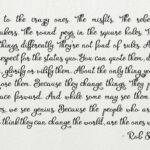 to the crazy ones The misfits. The rebe
ers The round pegs in the square holes. T
things differently They're not fond of rules. A
respect for the status quo. You can quote them, d
, glorify or vilify them. About the only thing y
ore them. Because they change things. They
ace forward. And while some may see them
, we see genius. Because the people who a
think they can change the world, are the ones w
Rob S